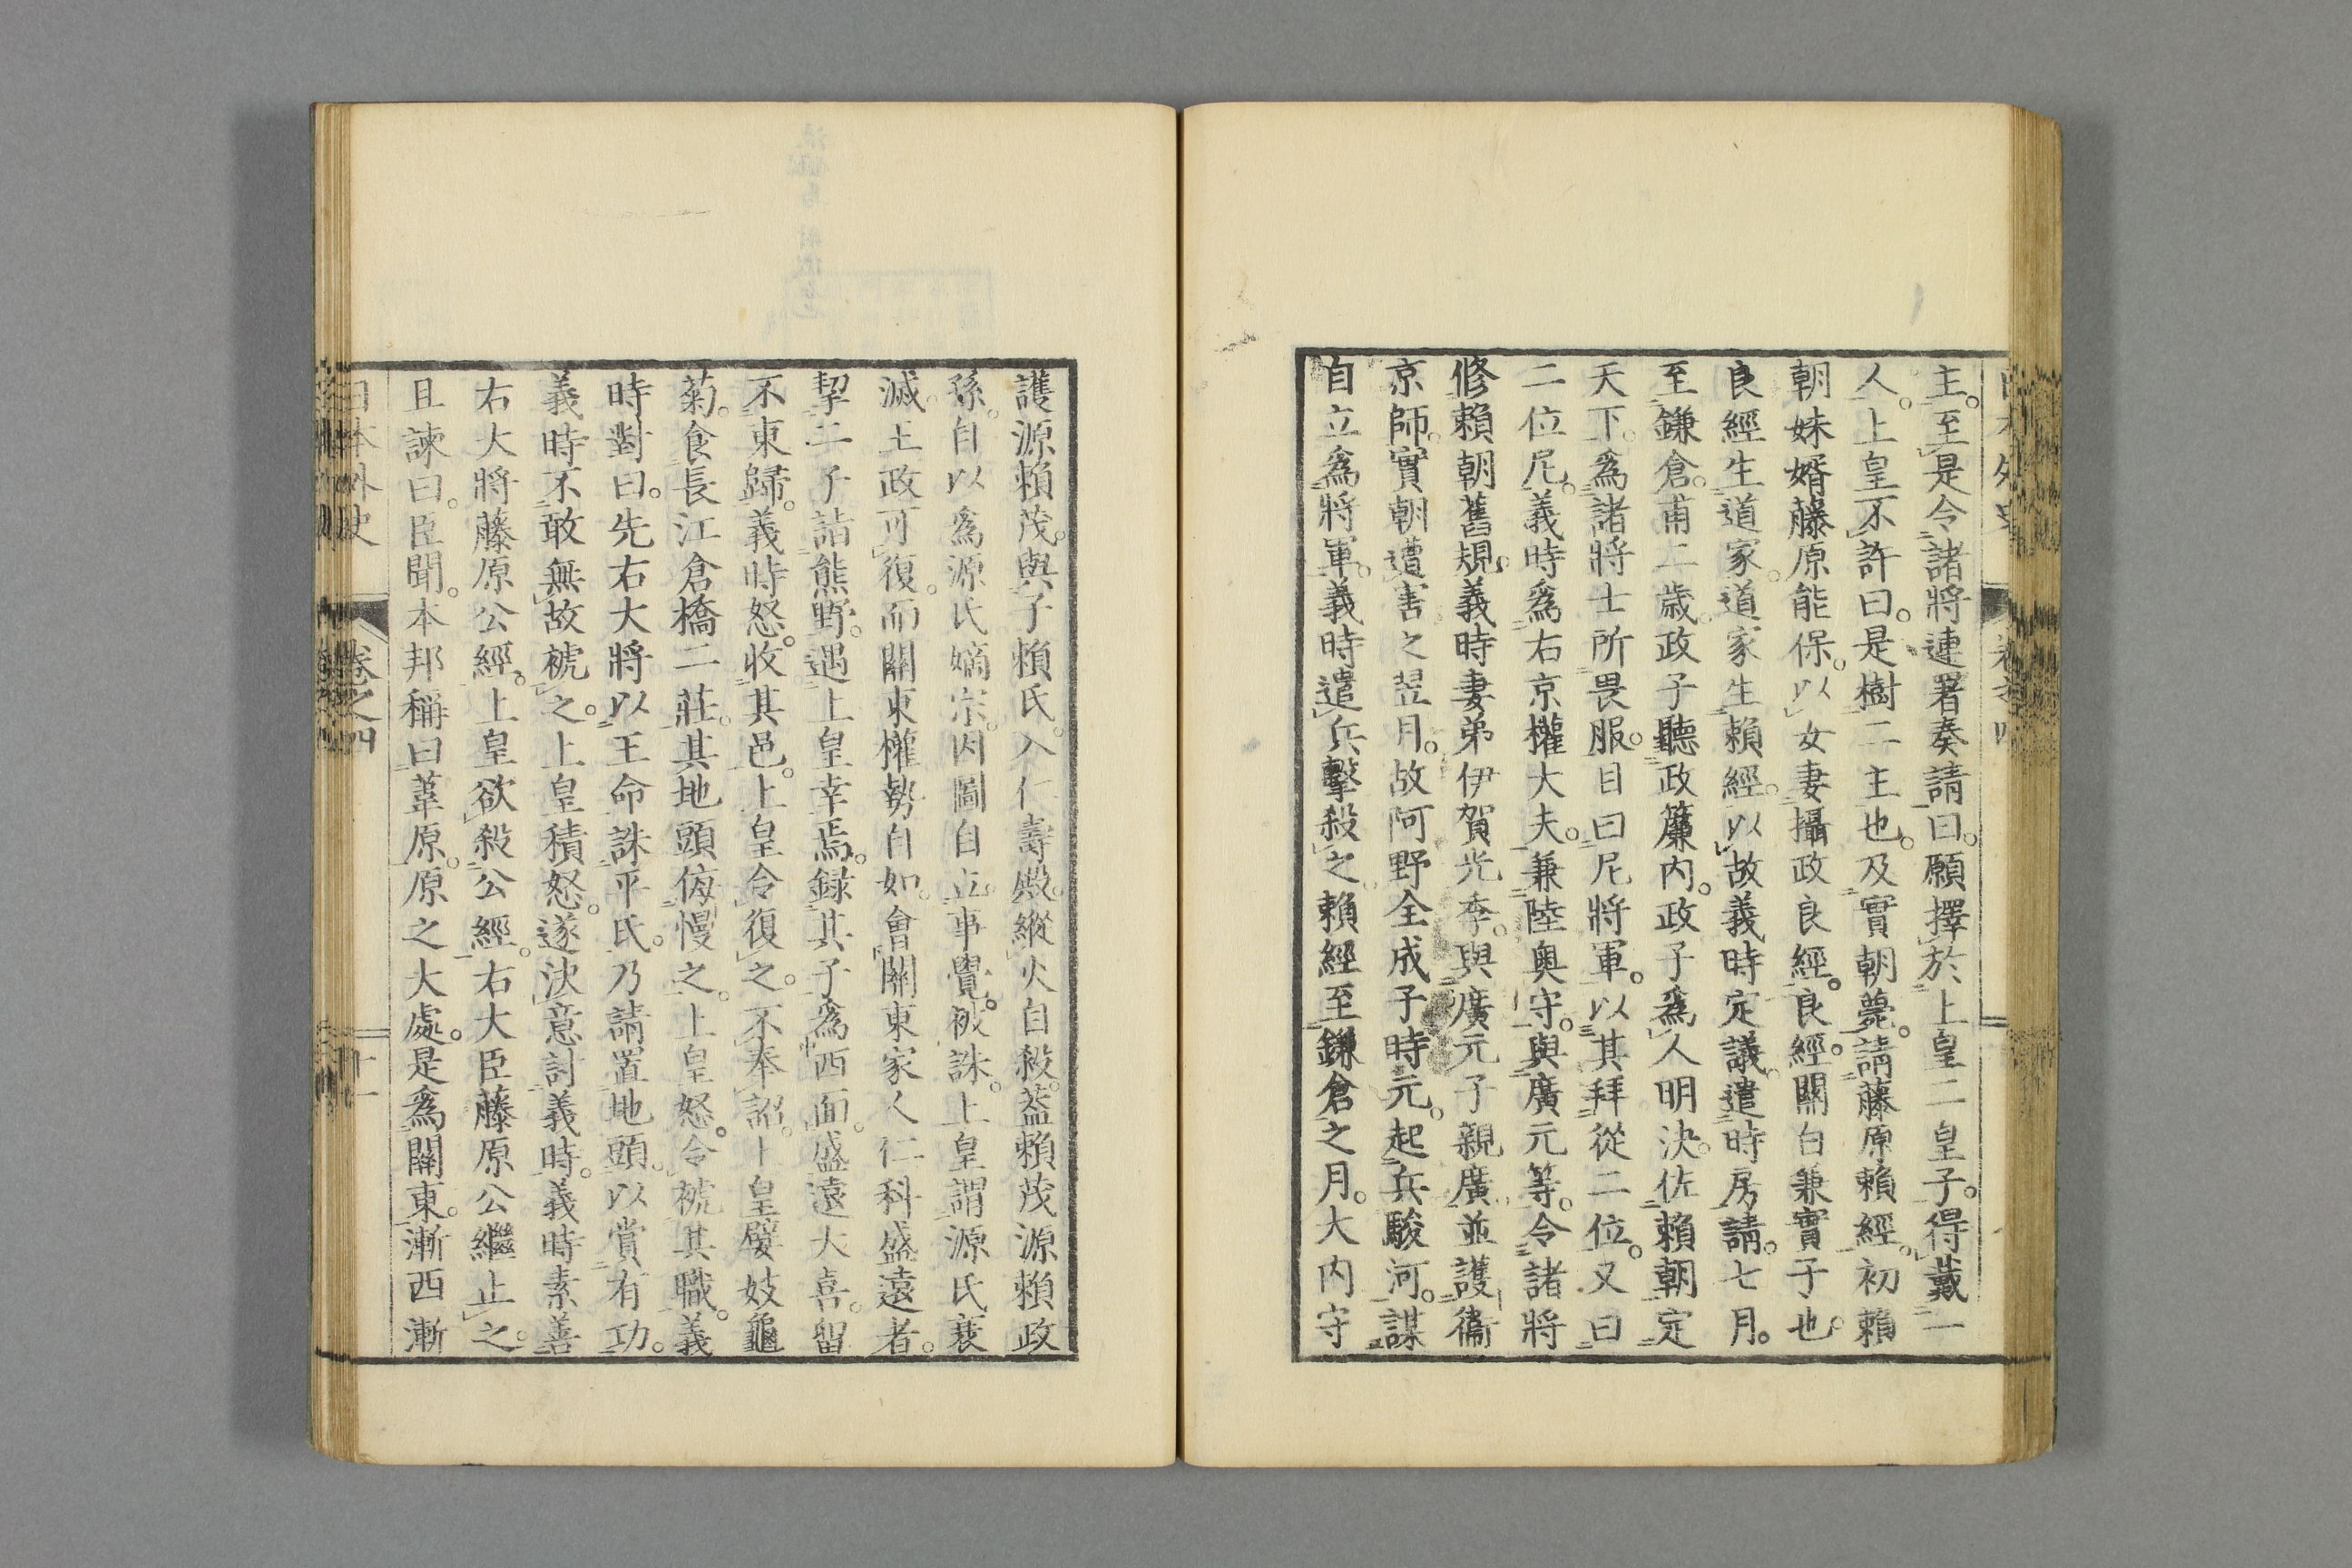 主。至是令諸將連署奏請曰。願擇於上皇二皇子。得戴一
人。上皇不許曰。是樹二主也。及實朝薨。請藤原賴經。初賴
朝妹婿藤原能保。以女妻攝政良經。良經關白兼實子也。
良經生道家。道家生賴經。以故義時定議。遣時房請。七月。
至鎌倉。甫二歲。政子聽政簾內。政子爲人明決。佐賴朝定
天下。爲諸將士所畏服。目曰尼將軍。以其拜從二位。又曰
二位尼。義時爲右京權大夫。兼陸奧守。與廣元等。令諸將
修賴朝舊規。義時妻弟伊賀光季。與廣元子親廣。並護衞
京師。實朝遭害之翌月。故阿野全成子時元。起兵駿河。謀
自立爲將軍。義時遣兵擊殺之。賴經至鎌倉之月。大內守
護源賴茂。與子賴氏。入仁壽殿。縱火自殺。蓋賴茂源賴政
孫。自以爲源氏嫡宗。因圖自立。事覺。被誅。上皇謂源氏衰
滅。王政可復。而關東權勢自如。會關東家人仁科盛遠者。
挈二子詣熊野。遇上皇幸焉。錄其子爲西面。盛遠大喜。留
不東歸。義時怒。收其邑。上皇令復之。不奉詔。上皇嬖妓龜
菊。食長江倉橋二莊。其地頭侮慢之。上皇怒。令褫其職。義
時對曰。先右大將以王命誅平氏。乃請置地頭。以賞有功。
義時不敢無故褫之。上皇積怒。遂決意討義時。義時素善
右大將藤原公經。上皇欲殺公經。右大臣藤原公繼止之。
且諫曰。臣聞。本邦稱曰葦原。原之大處。是爲關東。漸西漸
日本外史
卷之四
十一